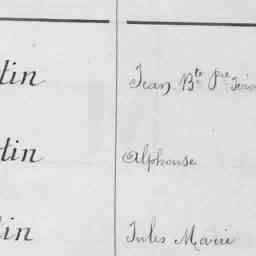 tin Jean Bte pre
tin Alphonse
lin Jules Marie